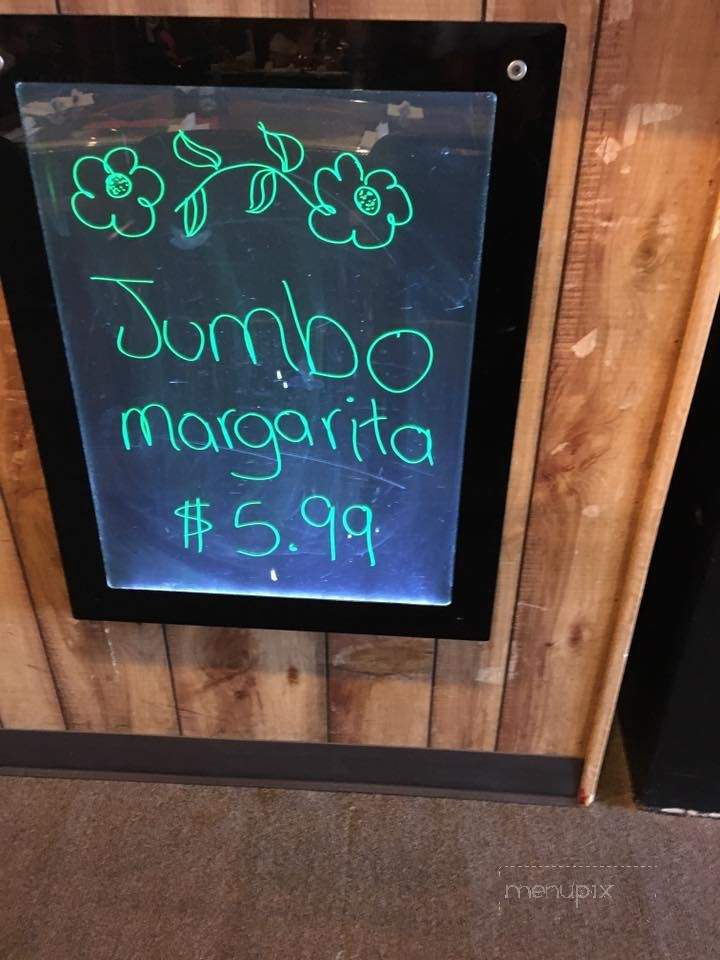 Jumbo
margarita
$5.99
menupix